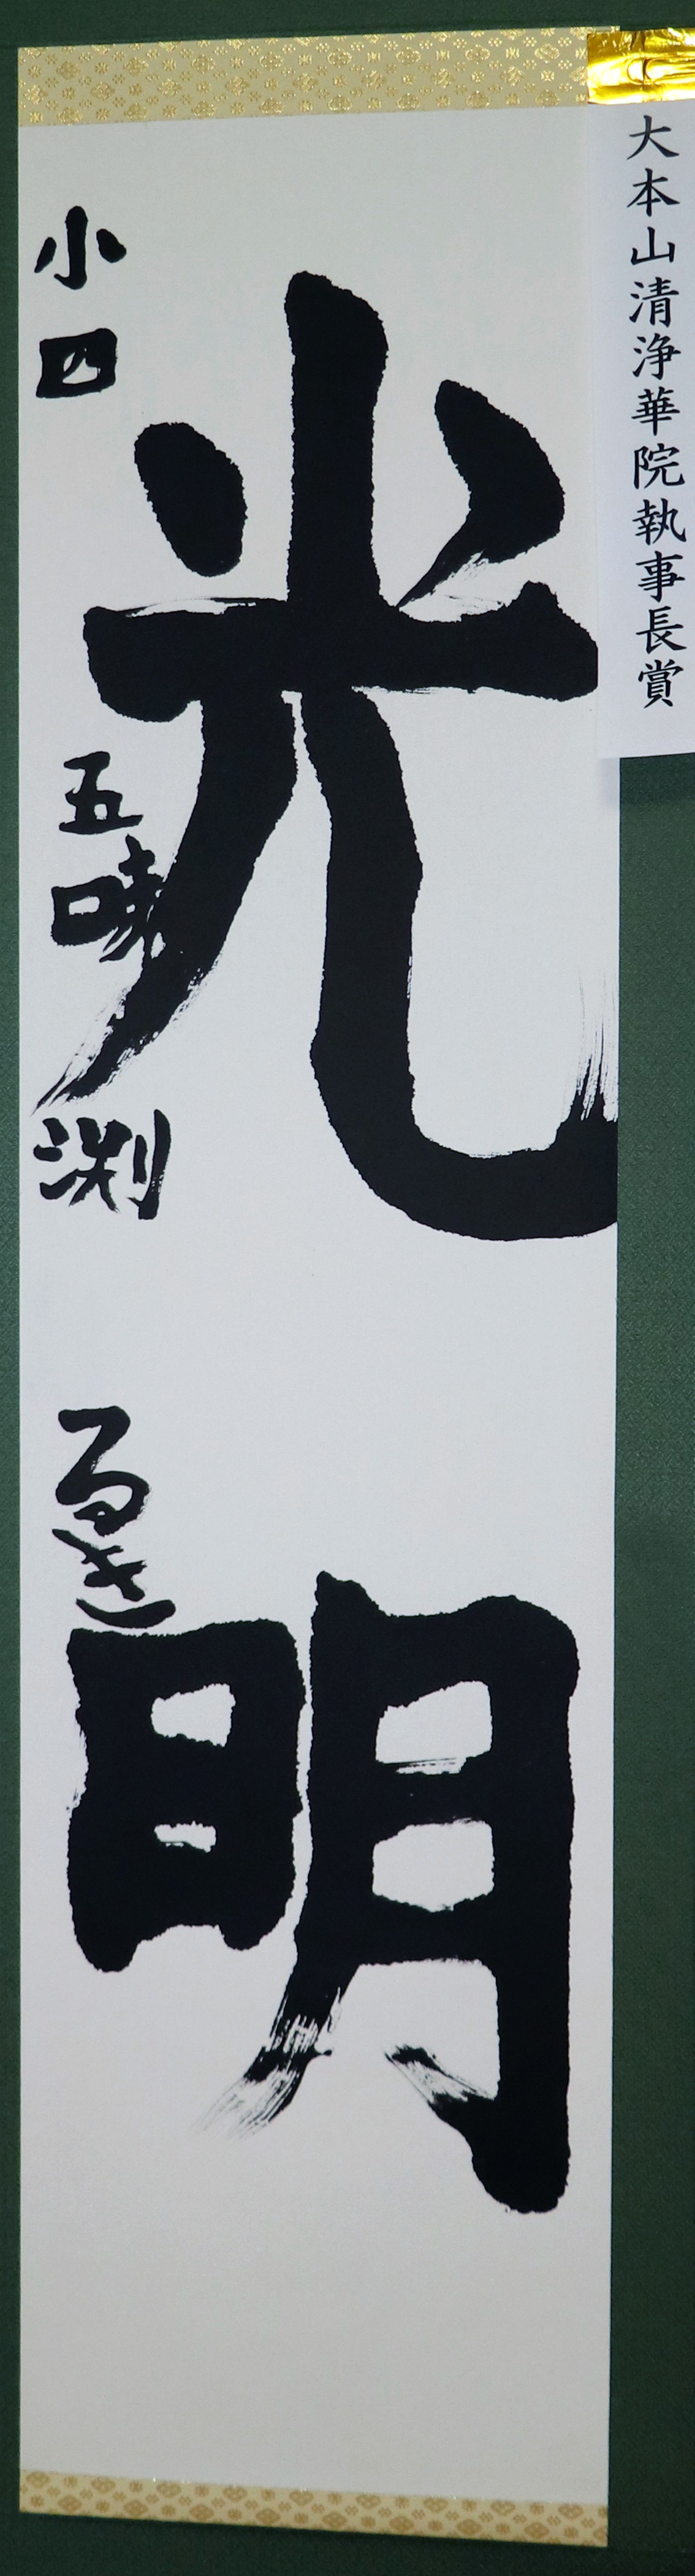 大本山清浄華院執事長賞
光明
小四 五味渕 るき